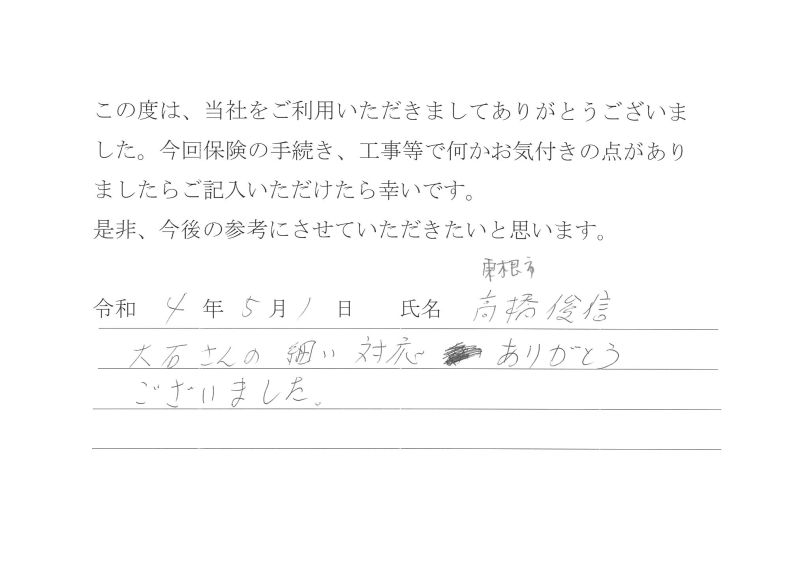 この度は、当社をご利用いただきましてありがとうございま
した。今回保険の手続き、工事等で何かお気付きの点があり
ましたらご記入いただけたら幸いです。
是非、今後の参考にさせていただきたいと思います。
東根市
令和 4 年 5 月 1 日 氏名 高橋俊信
大石さんの細い対応 ありがとう
ございました。